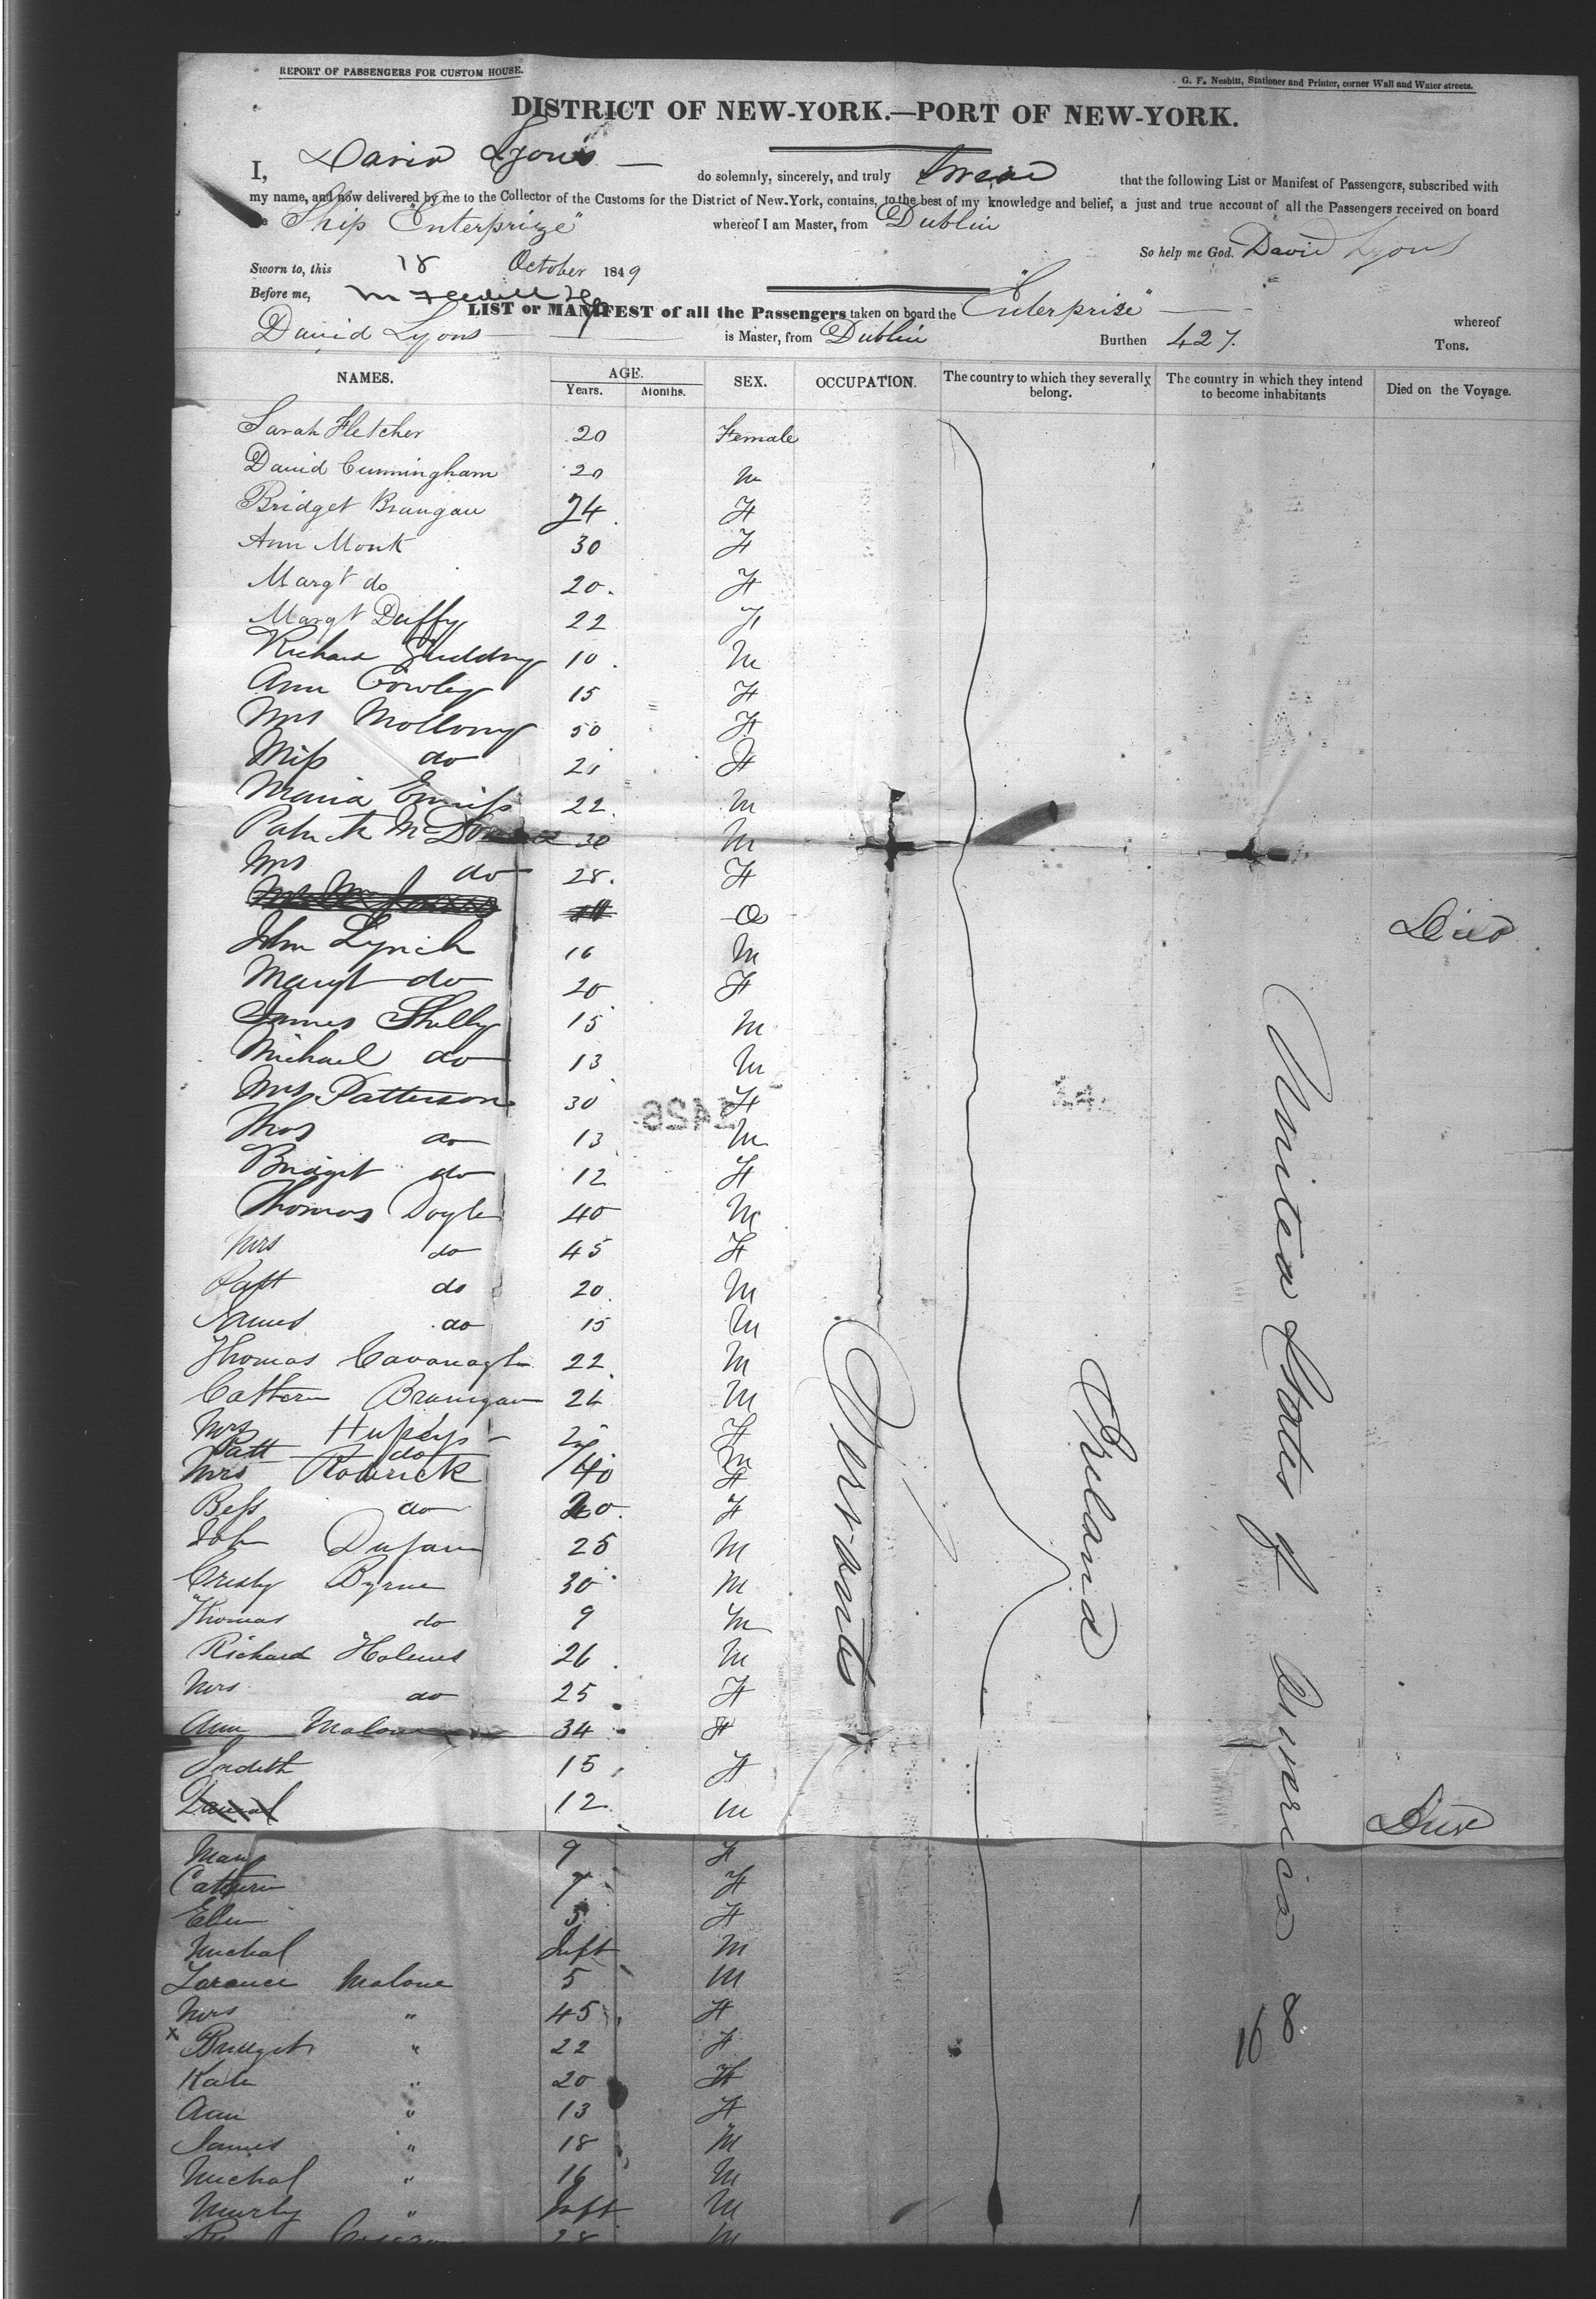 REPORT OF PASSENGERS FOR CUSTOM HOUSE.
G. F. Nesbitt, Stationer and Printer, corner Wall and Water streets.
DISTRICT OF NEW-YORK.—PORT OF NEW-YORK.
I, David Lyons do solemnly, sincerely, and truly Swear that the following List or Manifest of Passengers, subscribed with
my name, and now delivered by me to the Collector of the Customs for the District of New-York, contains, to the best of my knowledge and belief, a just and true account of all the Passengers received on board
Ship "Enterprize" whereof I am Master, from Dublin
So help me God. David Lyons
Sworn to, this 18 October 1849
Before me,
LIST or MANIFEST of all the Passengers taken on board the "Enterprise" whereof
David Lyons is Master, from Dublin Burthen 427. Tons.
NAMES. AGE. Years. Months. SEX. OCCUPATION. The country to which they severally belong. The country in which they intend to become inhabitants Died on the Voyage.
Sarah Fletcher 20 Female
David Cunningham 20 m
Bridget Brangan 24 F
Ann Monk 30 F
Margt do 20 F
Margt Duffy 22 F
Richard 10 M
Ann Cowley 15 F
Mrs Mollony 50 F
Miss do 21 F
Maria Enniss 22 M
Patrick 30 M
Mrs do 28 F
Died
John Lynch 16 M
Margt do 20 F
James Shelly 15 M
Michael do 13 M
Mrs Patterson 30 F
Thos do 13 M
Bridgit do 12 F
Thomas Doyle 40 M
Mrs do 45 F
Patt do 20 M
James do 15 M
Thomas Cavanagh 22 M
Cathern Branigan 24 M
Mrs F
Patt do M
Mrs Rowrick 40 F
Bess do 20 F
John 25 M
Byrne 30 M
Thomas do 9 M
Richard Holmes 26 M
Mrs do 25 F
Ann Malone 34 F
Judith 15 F
Danial 12 M Died
Mary 9 F
Cathern 7 F
Ellen 5 F
Michal Inft M
Larance Malone 5 M
Mrs " 45 F
x Bridget " 22 F
Kate " 20 F
Ann " 13 F
James " 18 M
Michal " 16 M
Murty " Inft M
28 M
Servants
Ireland
United States of America
168